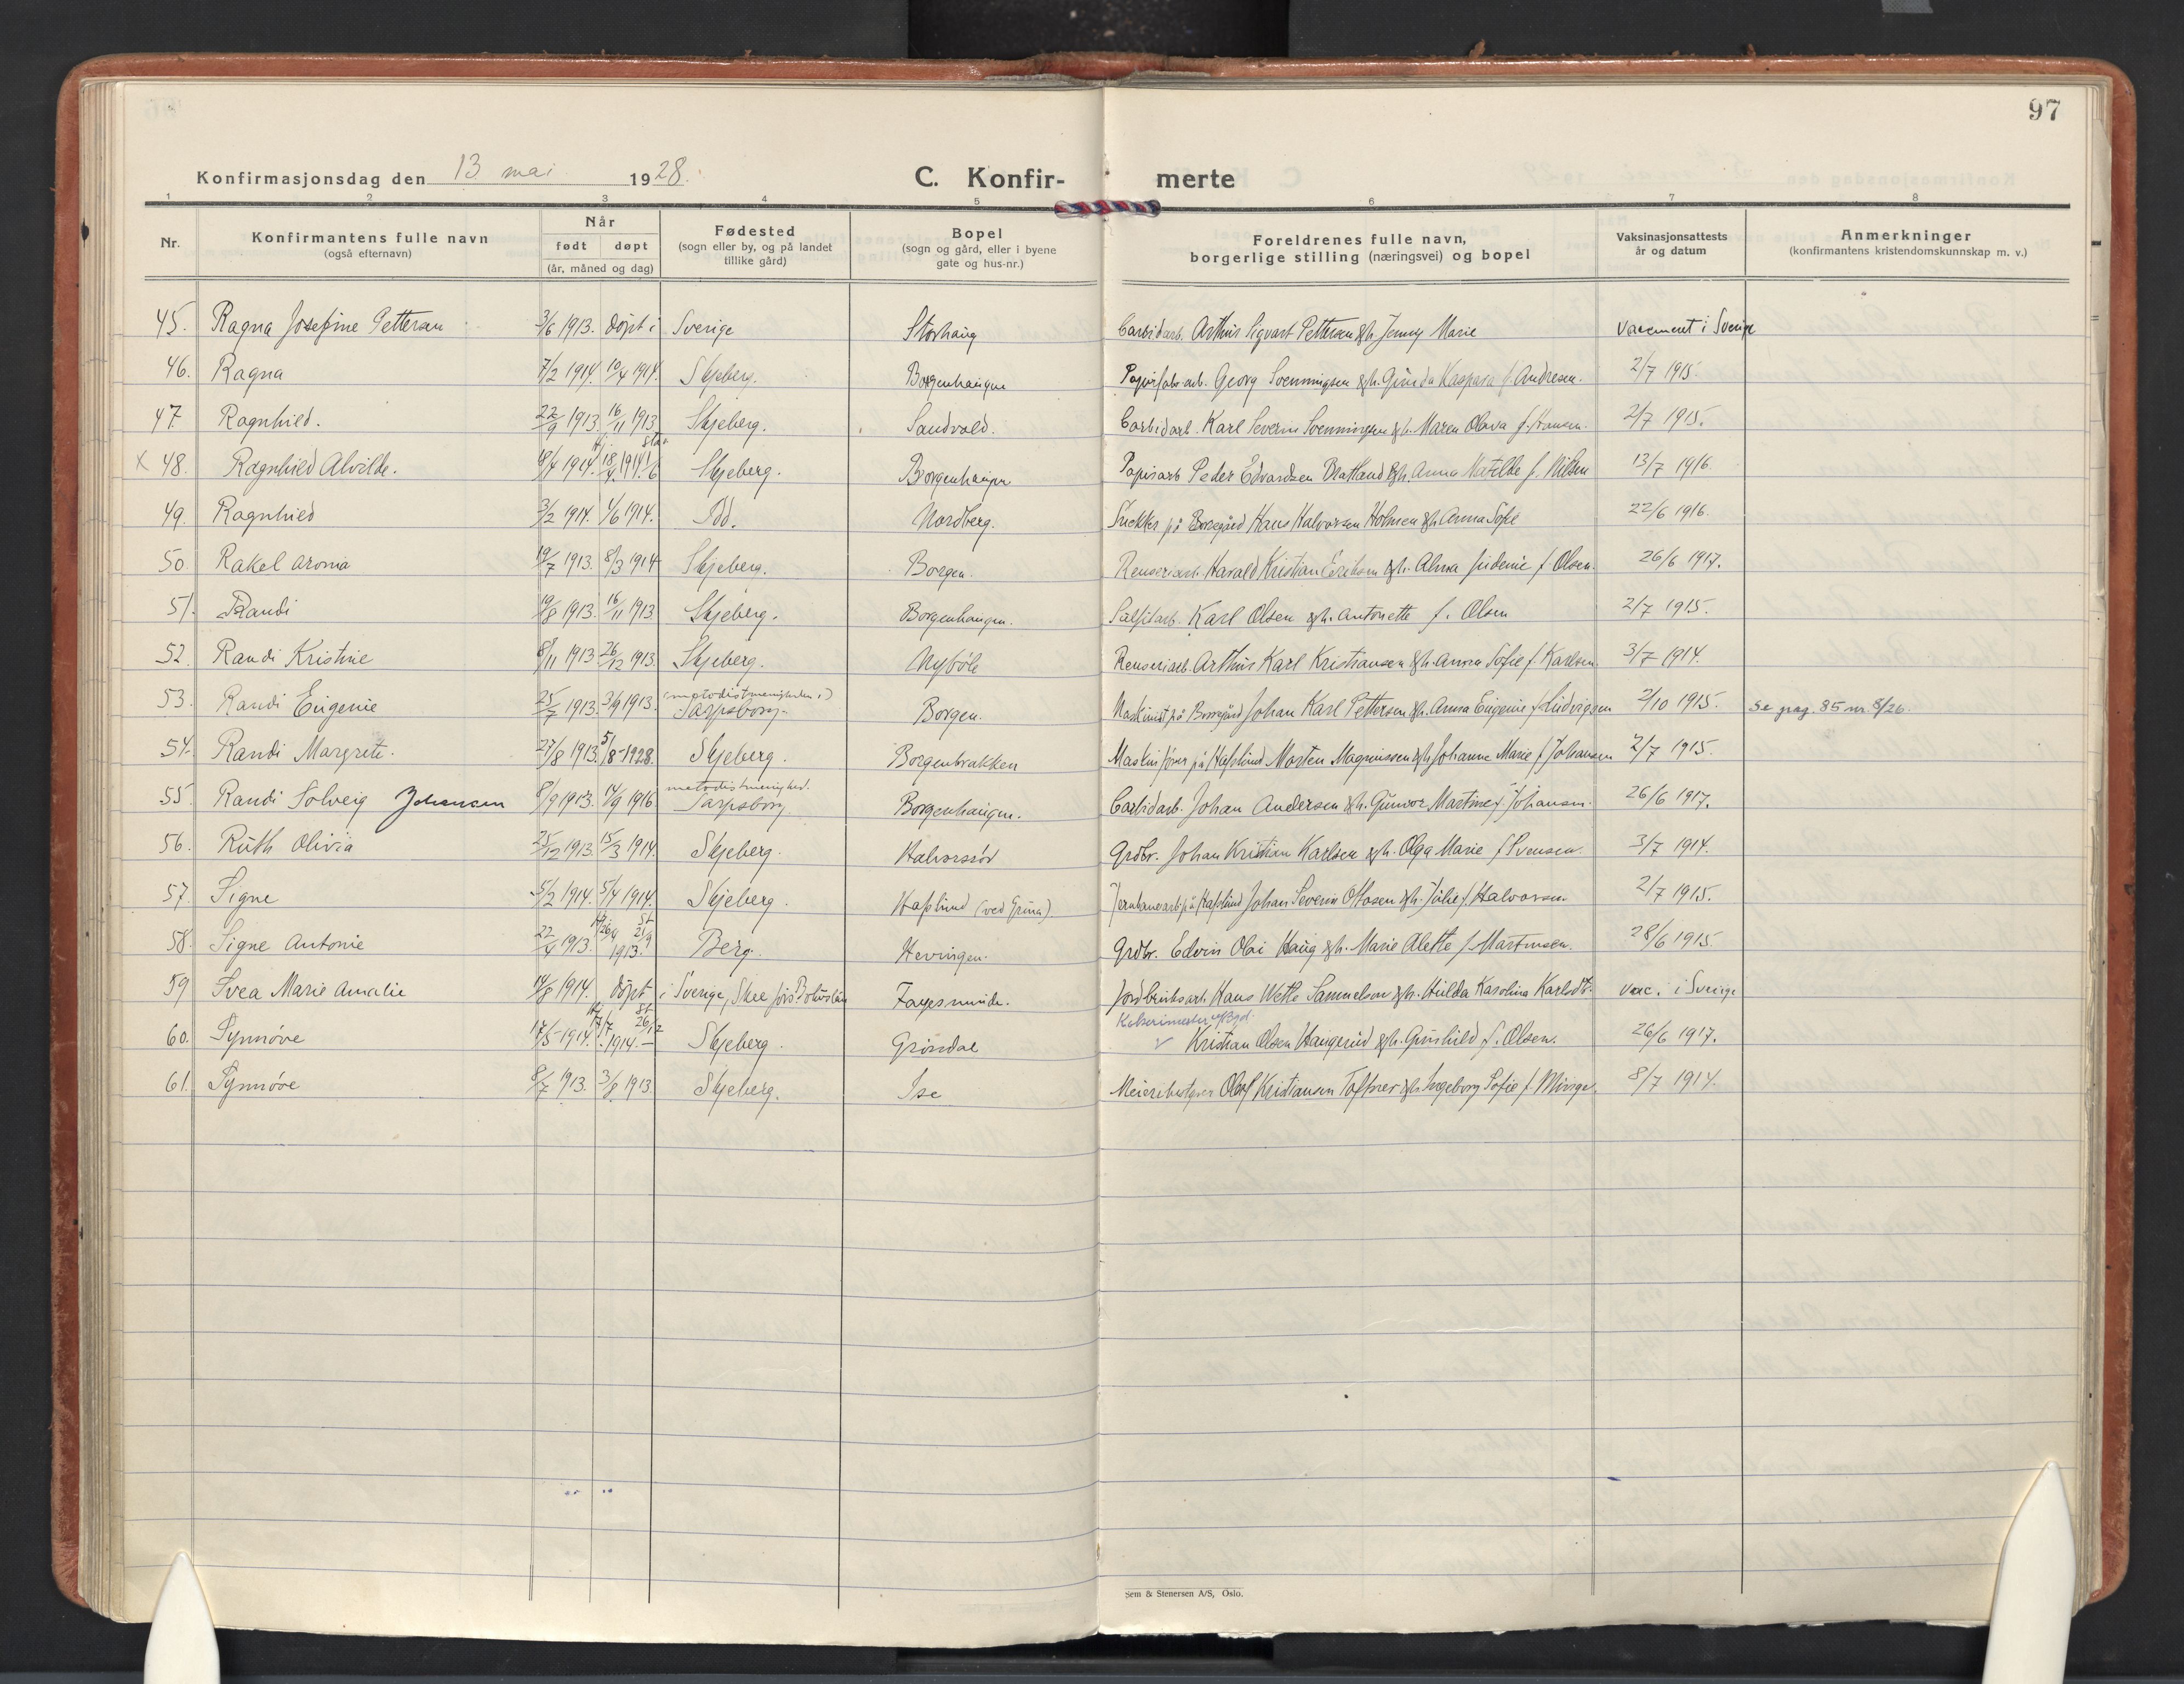 97
Konfirmasjonsdag den 13 mai 1928.
C. Konfir- merte
1 2 3 4 5 6 7 8
Nr.
Konfirmantens fulle navn
(også efternavn)
Når
født døpt
(år, måned og dag)
Fødested
(sogn eller by, og på landet
tillike gård)
Bopel
(sogn og gård, eller i byene
gate og hus-nr.)
Foreldrenes fulle navn,
borgerlige stilling (næringsvei) og bopel
Vaksinasjonsattests
år og datum
Anmerkninger
(konfirmantens kristendomskunnskap m. v.)
45. Ragna Josefine Pettersen 3/6 1913. døpt i Sverige Storhaug Carbidarb. Arthur Sigvart Pettersen & h. Jenny Marie Vaccineret i Sverige
46. Ragna 7/2 1914. 10/4 1914. Skjeberg. Borgenhaugen Papirfabr.arb. Georg Svenningsen & h. Gunda Kaspara f. Andresen. 2/7 1915.
47 Ragnhild. 22/9 1913. 16/11 1913 Skjeberg. Sandvold. Carbidarb. Karl Severin Svenningsen & h. Maren Olava f. Hansen. 2/7 1915.
Hj. Sta
X 48. Ragnhild Alvilde. 1914. 18/4 1914 1/6 Skjeberg. Borgenhaugen Papirarb Peder Edvardsen Bratland & h. Anna Matilde f. Nilsen 13/7 1916.
49. Ragnhild 3/2 1914. 1/6 1914. Id. Nordberg. Snekker på Borregård Hans Halvorsen Holmen & h. Anna Sofie 22/6 1916.
50. Rakel Aronia 19/7 1913. 8/3 1914 Skjeberg. Borgen. Renseriarb. Harald Kristian Eriksen & h. Alma f. Olsen. 26/6 1917.
51. Randi 19/8 1913. 16/11 1913. Skjeberg. Borgenhaugen. Sulfitarb. Karl Olsen & h. Antonette f. Olsen 2/7 1915.
52. Randi Kristine 8/11 1913 26/12 1913. Skjeberg. Nybøle Renseriarb. Arthur Karl Kristiansen & h. Anna Sofie f. Karlsen. 3/7 1914.
(metodistmenigheten i)
53. Randi Eugenie 25/7 1913. 3/9 1913. Sarpsborg. Borgen. Maskinist på Borregård Johan Karl Pettersen & h. Anna Eugenie f. Ludvigsen 2/10 1915. Se pag. 85 nr. 8/26.
54. Randi Margrete. 27/8 1913. 5/8-1928. Skjeberg. Borgenbrakken Maskinfører på Hafslund Morten Magnussen & h. Johanne Marie f. Johansen 2/7 1915.
metodistmenighed.
55. Randi Solveig Johansen 8/9 1913. 14/9 1916 Sarpsborg. Borgenhaugen. Carbidarb. Johan Andersen & h. Gunvor Martine f. Johansen. 26/6 1917.
56. Ruth Olivia 25/12 1913. 15/3 1914. Skjeberg. Halvorsrød Grdbr. Johan Kristian Karlsen & h. Olga Marie f. Svensen. 3/7 1914.
57. Signe 5/2 1914. 5/4 1914. Skjeberg. Hafslund (ved Gruna) Jernbanearb. på Hafslund Johan Severin Ottosen & h. Julie f. Halvorsen 2/7 1915.
Hj. 26/4 St 21/9
58. Signe Antonie 22/4 1913. 1913. Berg. Hevingen. Grdbr. Edvin Olai Haug & h. Marie Alette f. Martinsen. 28/6 1915.
59 Svea Marie Amalie 14/8 1914. døpt i Sverige, Skee Bohuslän Fagesmunde. Jordbruksarb. Hans Wette Samuelson & h. Hulda Karolina Karlsdt. vac. i Sverige
Hj. 17/7 St 26/12 Kokerimester v/Bgd.
60. Synnøve 17/5-1914. 1914.- Skjeberg. Grønsdal Kristian Olsen Haugerud & h. Gunhild f. Olsen. 26/6 1917.
61. Synnøve 8/7 1913. 3/8 1913. Skjeberg. Ise Meieribestyrer Olaf Kristiansen Toftner & h. Ingeborg Sofie f. Minge. 8/7 1914.
Sem & Stenersen A/S, Oslo.